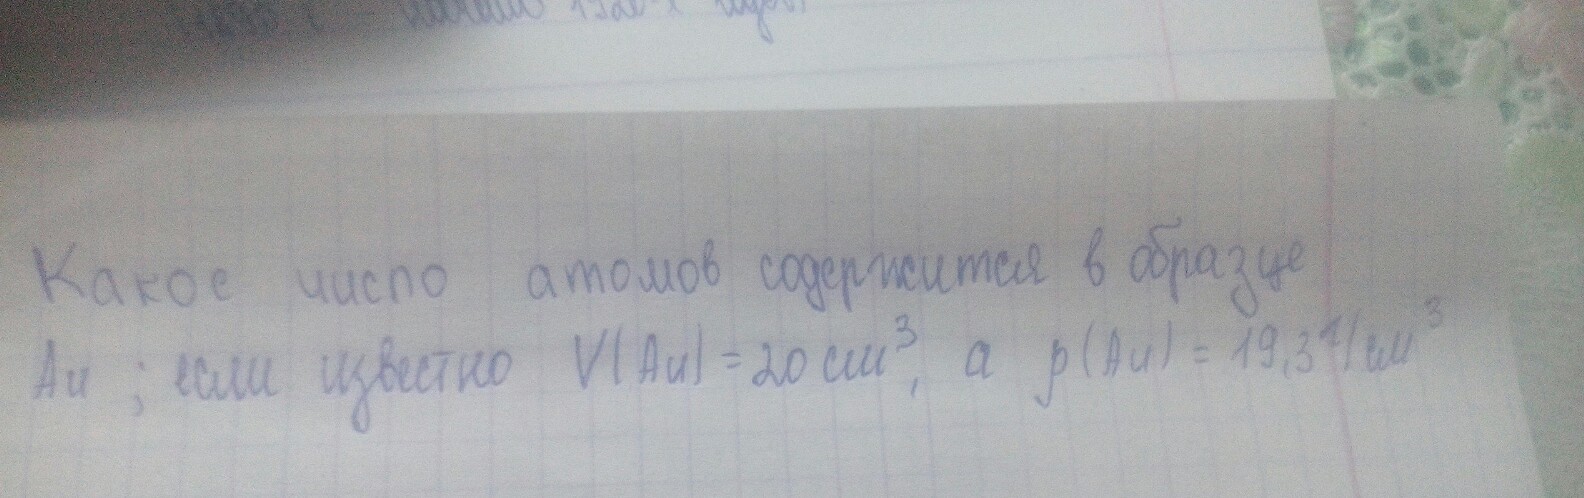 Какое число атомов содержится в образце
Au; если известно V(Au) = 20 см³, а p(Au) = 19,3 г/см³